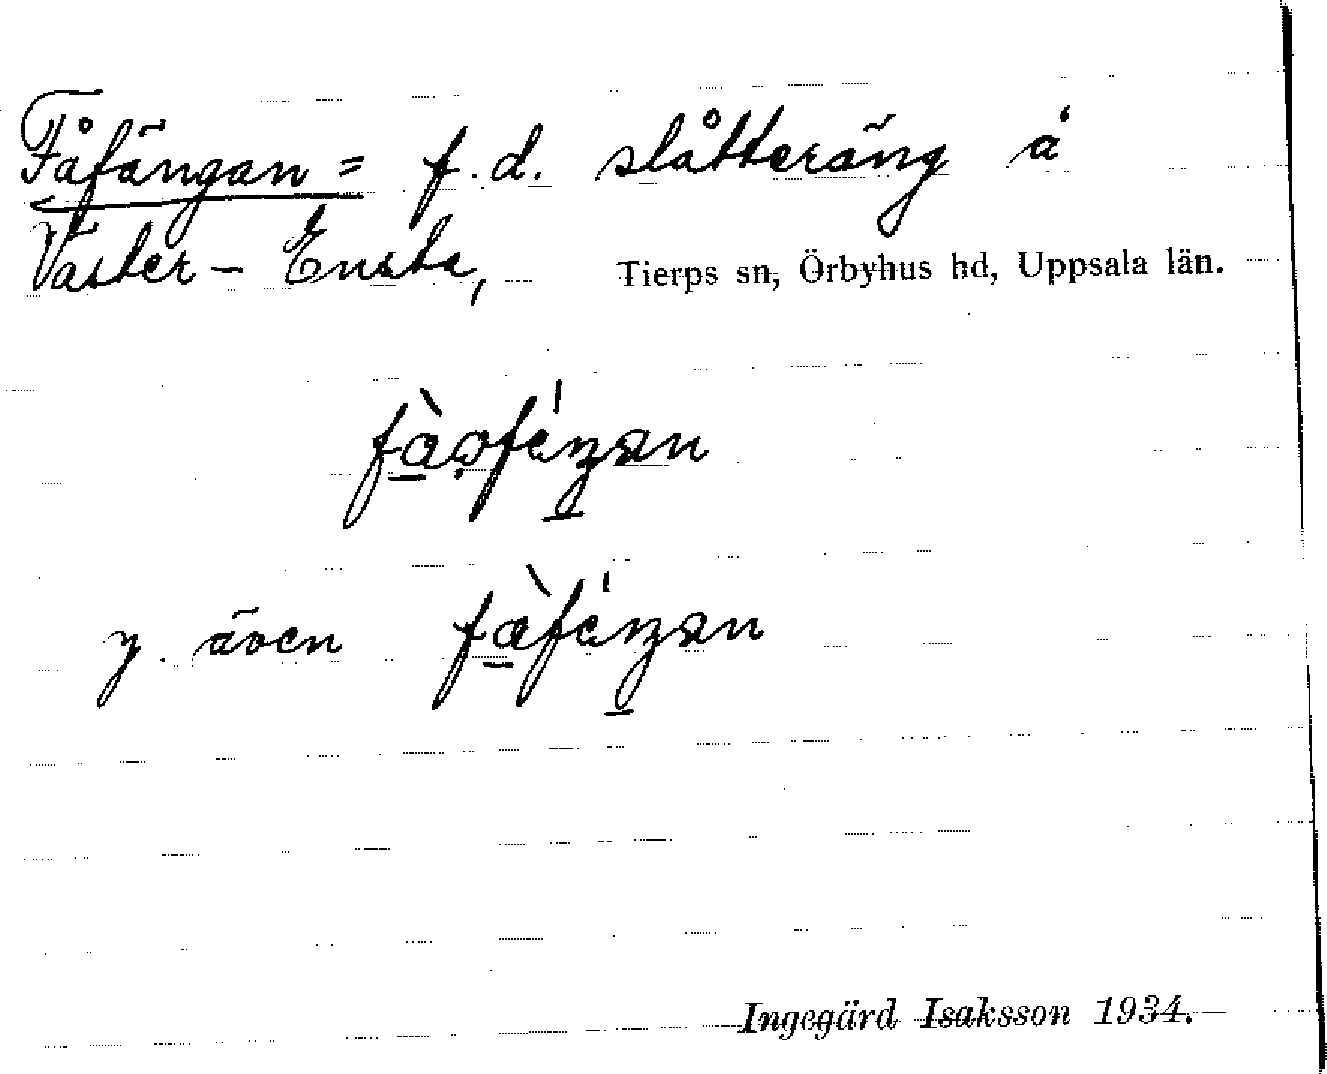 Fåfängan = f.d. slåtteräng å
Väster-Ensta, Tierps sn, Örbyhus hd, Uppsala län.
y. även
Ingegärd Isaksson 1934.